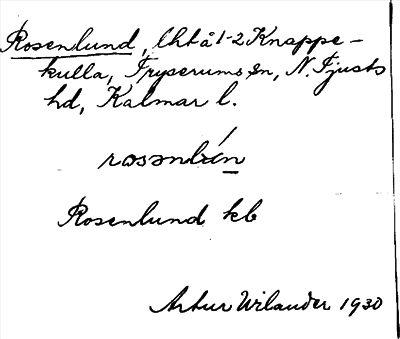 Rosenlund, lht å 1-2 Knappe-
kulla, Tryserums sn, N. Tjusts
hd, Kalmar l.
Rosenlund kb
Artur Wilander 1930